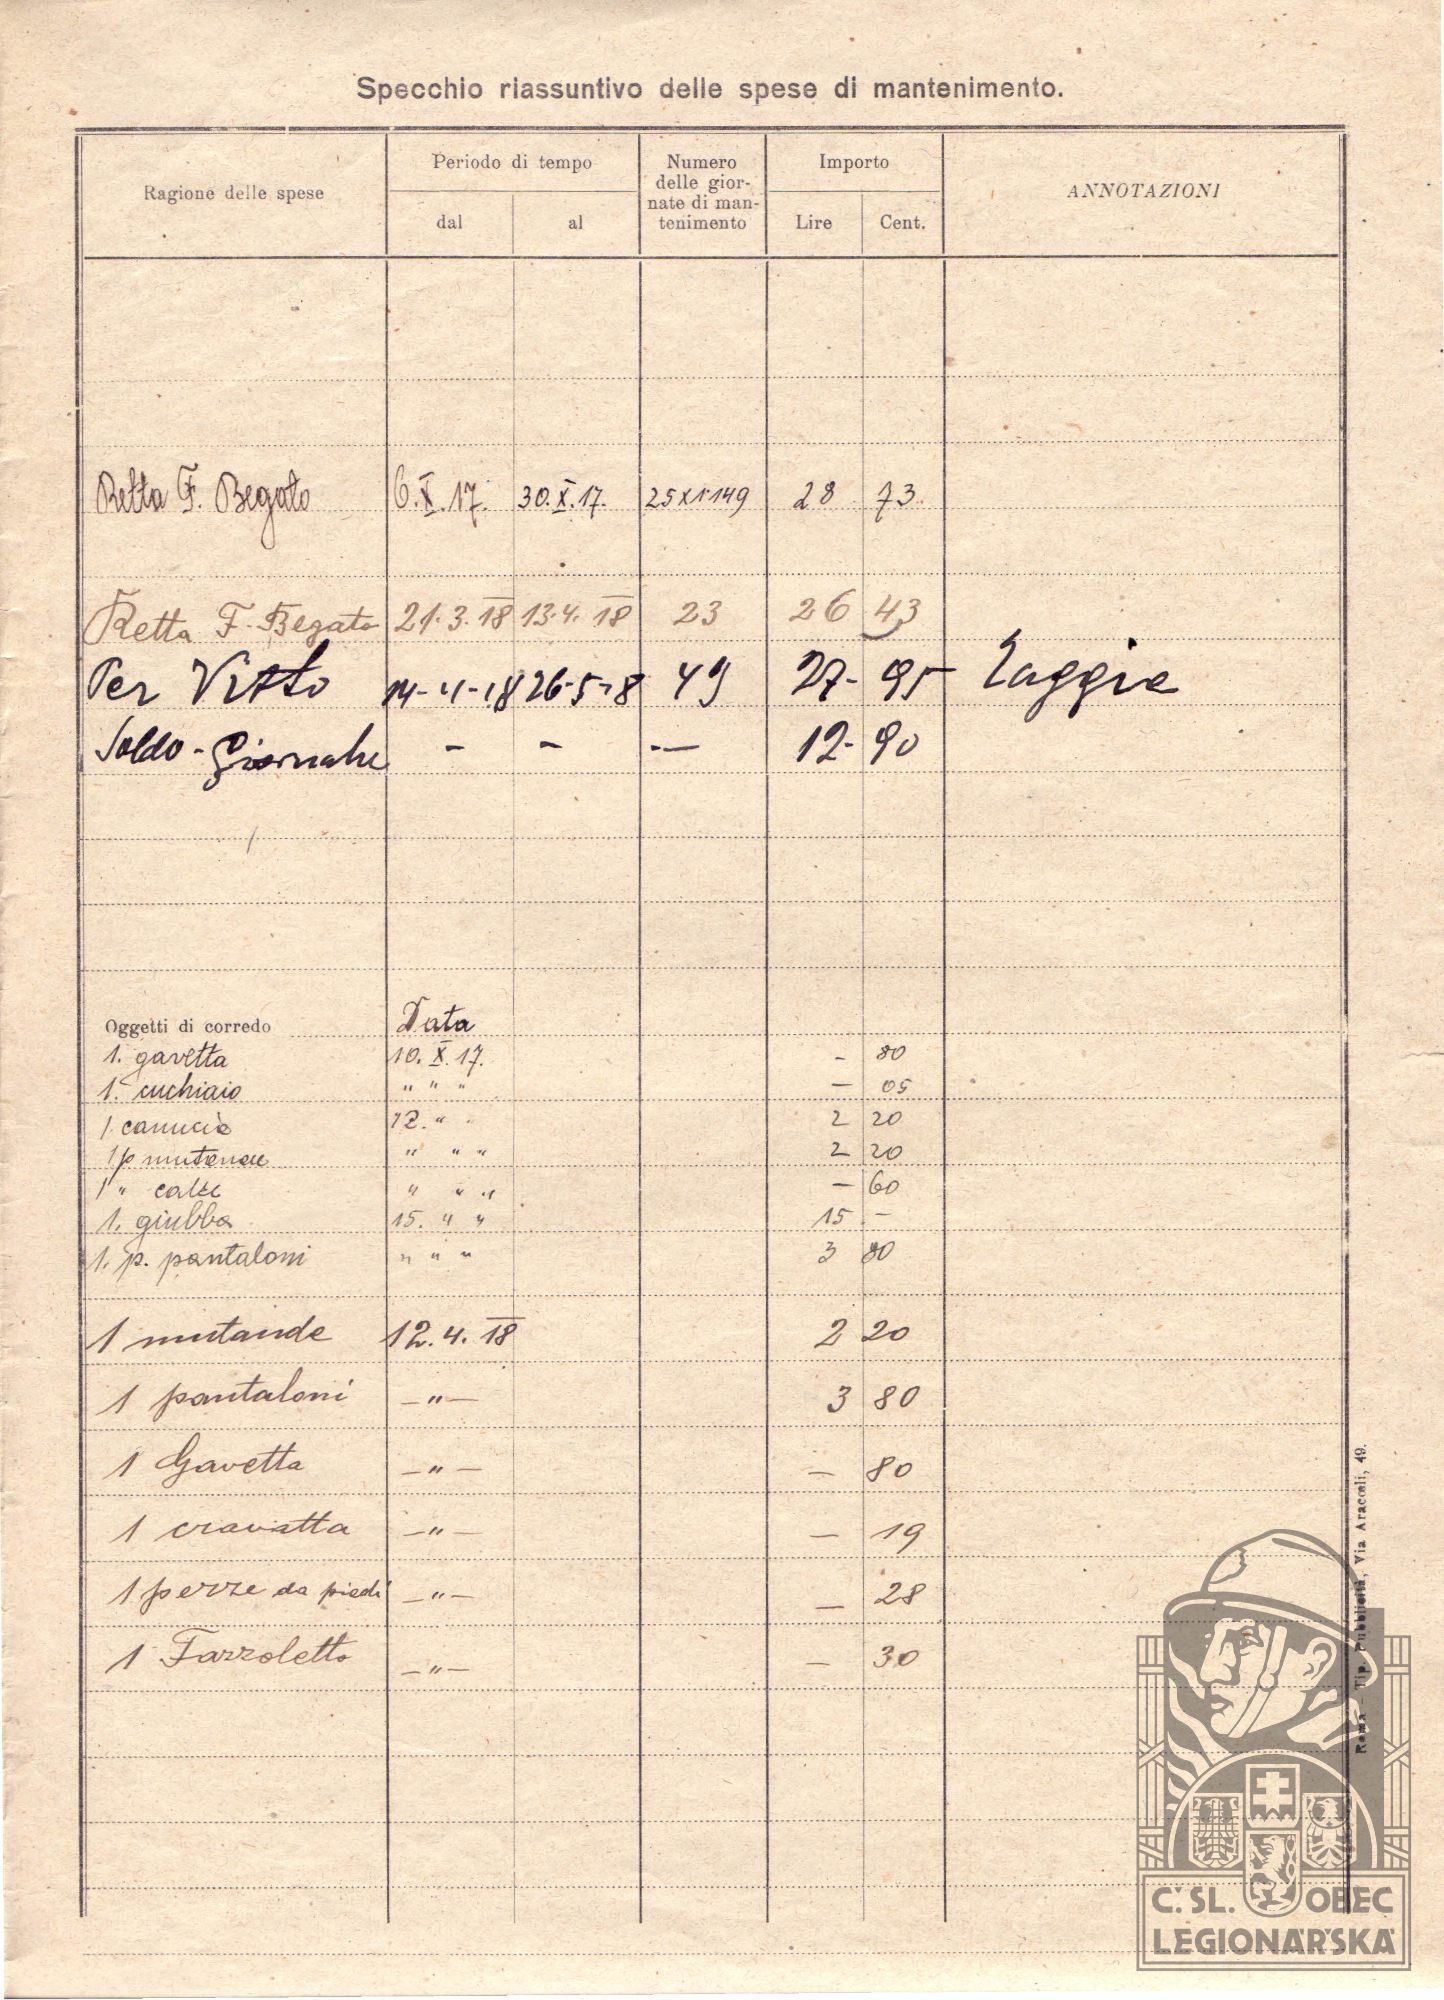 Specchio riassuntivo delle spese di mantenimento.
Ragione delle spese
Periodo di tempo
dal
al
Numero
delle gior-
nate di man-
tenimento
Importo
Lire
Cent.
ANNOTAZIONI
Retta F. Begato 6.X.17. 30.X.17. 25x1·149 28 73.
Retta F. Begato 21.3.18 13.4.18 23 26 43
Per Vitto 14-4-18 26-5-18 49 27- 95
Soldo - - - -- 12- 90
Oggetti di corredo Data
1. gavetta 10. X. 17. - 80
1. cuchiaio " " " - 05
1 camicia 12. " " 2 20
1 p " " " 2 20
1 " calze " " " - 60
1. giubba 15. " " 15 -
1. p. pantaloni " " " 3 80
1 mutande 12. 4. 18 2 20
1 pantaloni -"- 3 80
1 Gavetta -"- - 80
1 cravatta -"- - 19
1 pezze da piedi -"- - 28
1 Fazzoletto -"- - 30
Roma - Tip. Pubblicità, Via Aracœli, 49.
Č. SL. OBEC
LEGIONÁŘSKÁ